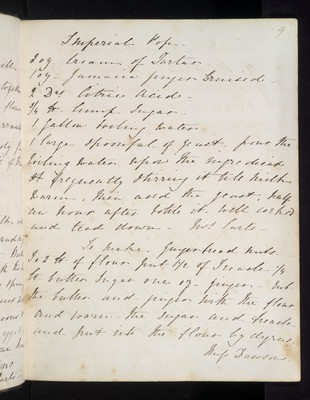 9
Imperial Pop.
2 oz. Cream of Tartar
1 oz. Jamaica ginger bruised.
2 Drs Citric Acid.
3/4 lb Lump Sugar.
1 gallon boiling water
1 large spoonful of yeast, pour the
boiling water upon the ingredients
frequently stirring it till milk
warm, then add the yeast, half
an hour after bottle it, well corked
and tied down. Mrs
To make Gingerbread Nuts.
To 2 lb of flour put 1 1/2 of Treacle
lb butter Sugar one oz. ginger. Rub
the butter and ginger with the flour
and warm the sugar and treacle
and put into the flour by degrees.
Miss Dawson